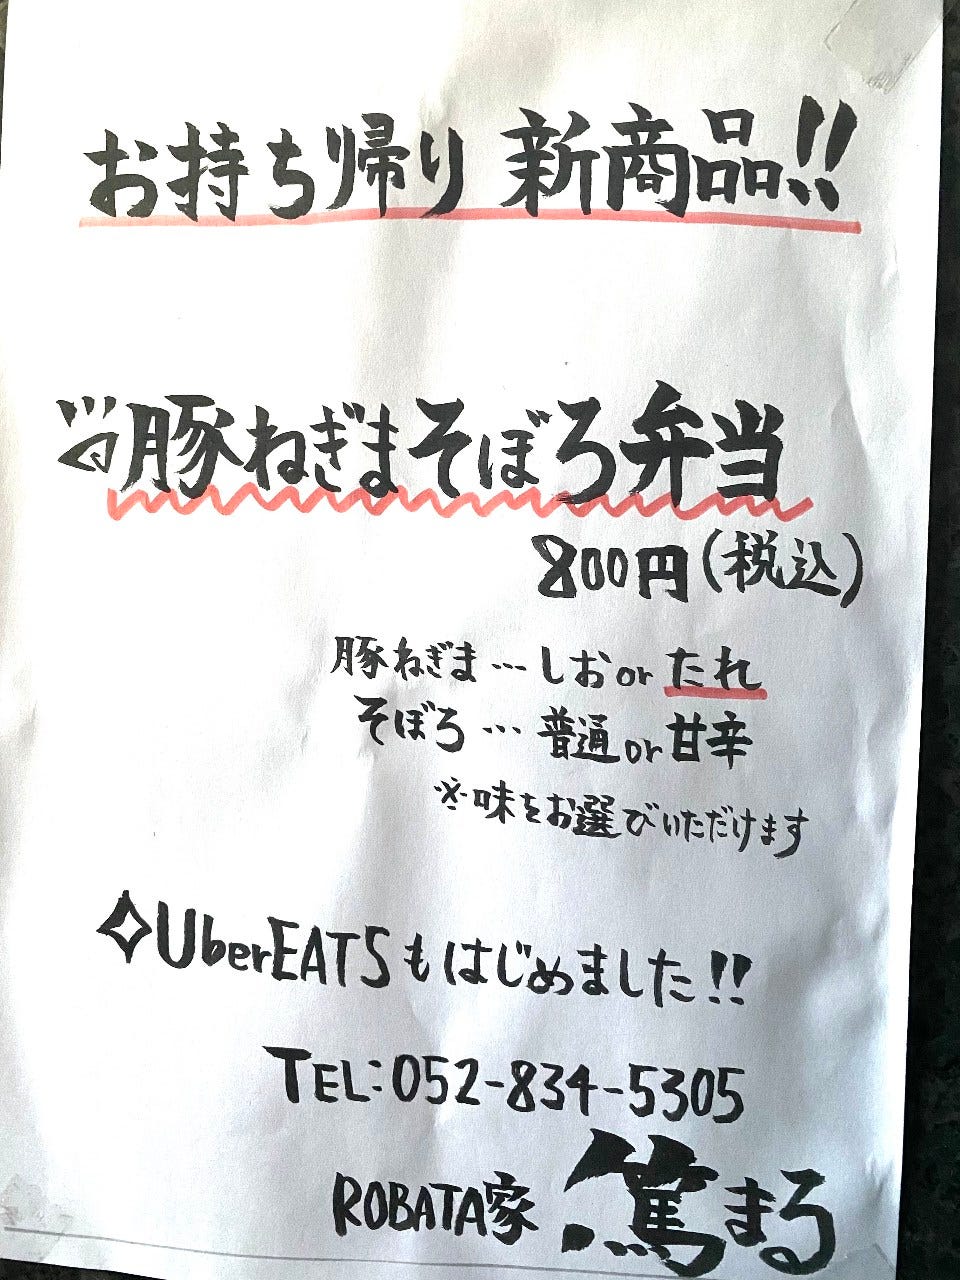 お持ち帰り 新商品!!
豚ねぎまそぼろ弁当
800円(税込)
豚ねぎま…しおorたれ
そぼろ…普通or甘辛
※味をお選びいただけます
UberEATSもはじめました!!
TEL:052-834-5305
ROBATA家 篤まる